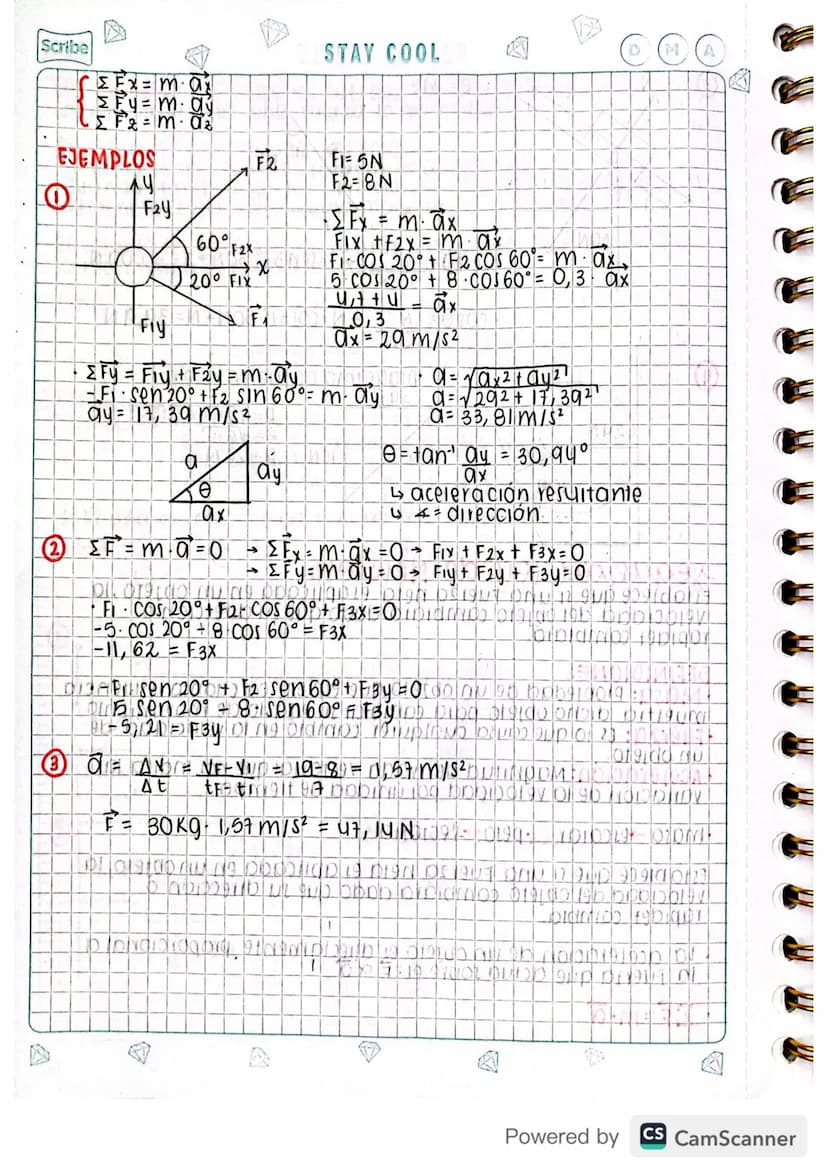 Scribe
STAY COOL
D M A
Σ F⃗x = m · a⃗x
Σ F⃗y = m · a⃗y
Σ F⃗z = m · a⃗z
EJEMPLOS
①
y
F2y
F⃗2
60° F2x
x
20° F1x
F⃗1
F1y
F1 = 5N
F2 = 8N
· Σ F⃗x = m · a⃗x
F1x + F2x = m · a⃗x
F1 · cos 20° + F2 cos 60° = m · a⃗x
5 cos 20° + 8 · cos 60° = 0,3 · a⃗x
4,7 + 4 / 0,3 = a⃗x
a⃗x = 29 m/s²
· Σ F⃗y = F⃗1y + F⃗2y = m · a⃗y
-F1 · sen 20° + F2 sin 60° = m · a⃗y
ay = 17,39 m/s²
· a = √ax² + ay²
a = √29² + 17,39²
a = 33,81 m/s²
a
a⃗y
θ
ax
θ = tan⁻¹ ay/ax = 30,94°
↳ aceleración resultante
↳ ∡ = dirección
② ΣF⃗ = m · a⃗ = 0 → ΣF⃗x = m · a⃗x = 0 → F1x + F2x + F3x = 0
→ ΣF⃗y = m · a⃗y = 0 → F1y + F2y + F3y = 0
· F1 · cos 20° + F2 · cos 60° + F3x = 0
-5 · cos 20° - 8 cos 60° = F3x
-11,62 = F3x
-F1 · sen 20° + F2 · sen 60° + F3y = 0
5 sen 20° - 8 · sen 60° = F3y
-5,21 = F3y
③ a⃗ = Δv/Δt = vf - vi / tf - ti = 19 - 8 / 7 = 1,57 m/s²
F⃗ = 30 Kg · 1,57 m/s² = 47,14 N
Powered by CS CamScanner